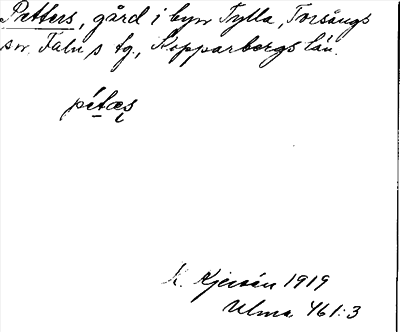 Petters, gård i byn Tylla, Torsångs
sn. Falu s tg., Kopparbergs län.
pétæs
K. Kjersén 1919
Ulma 461:3